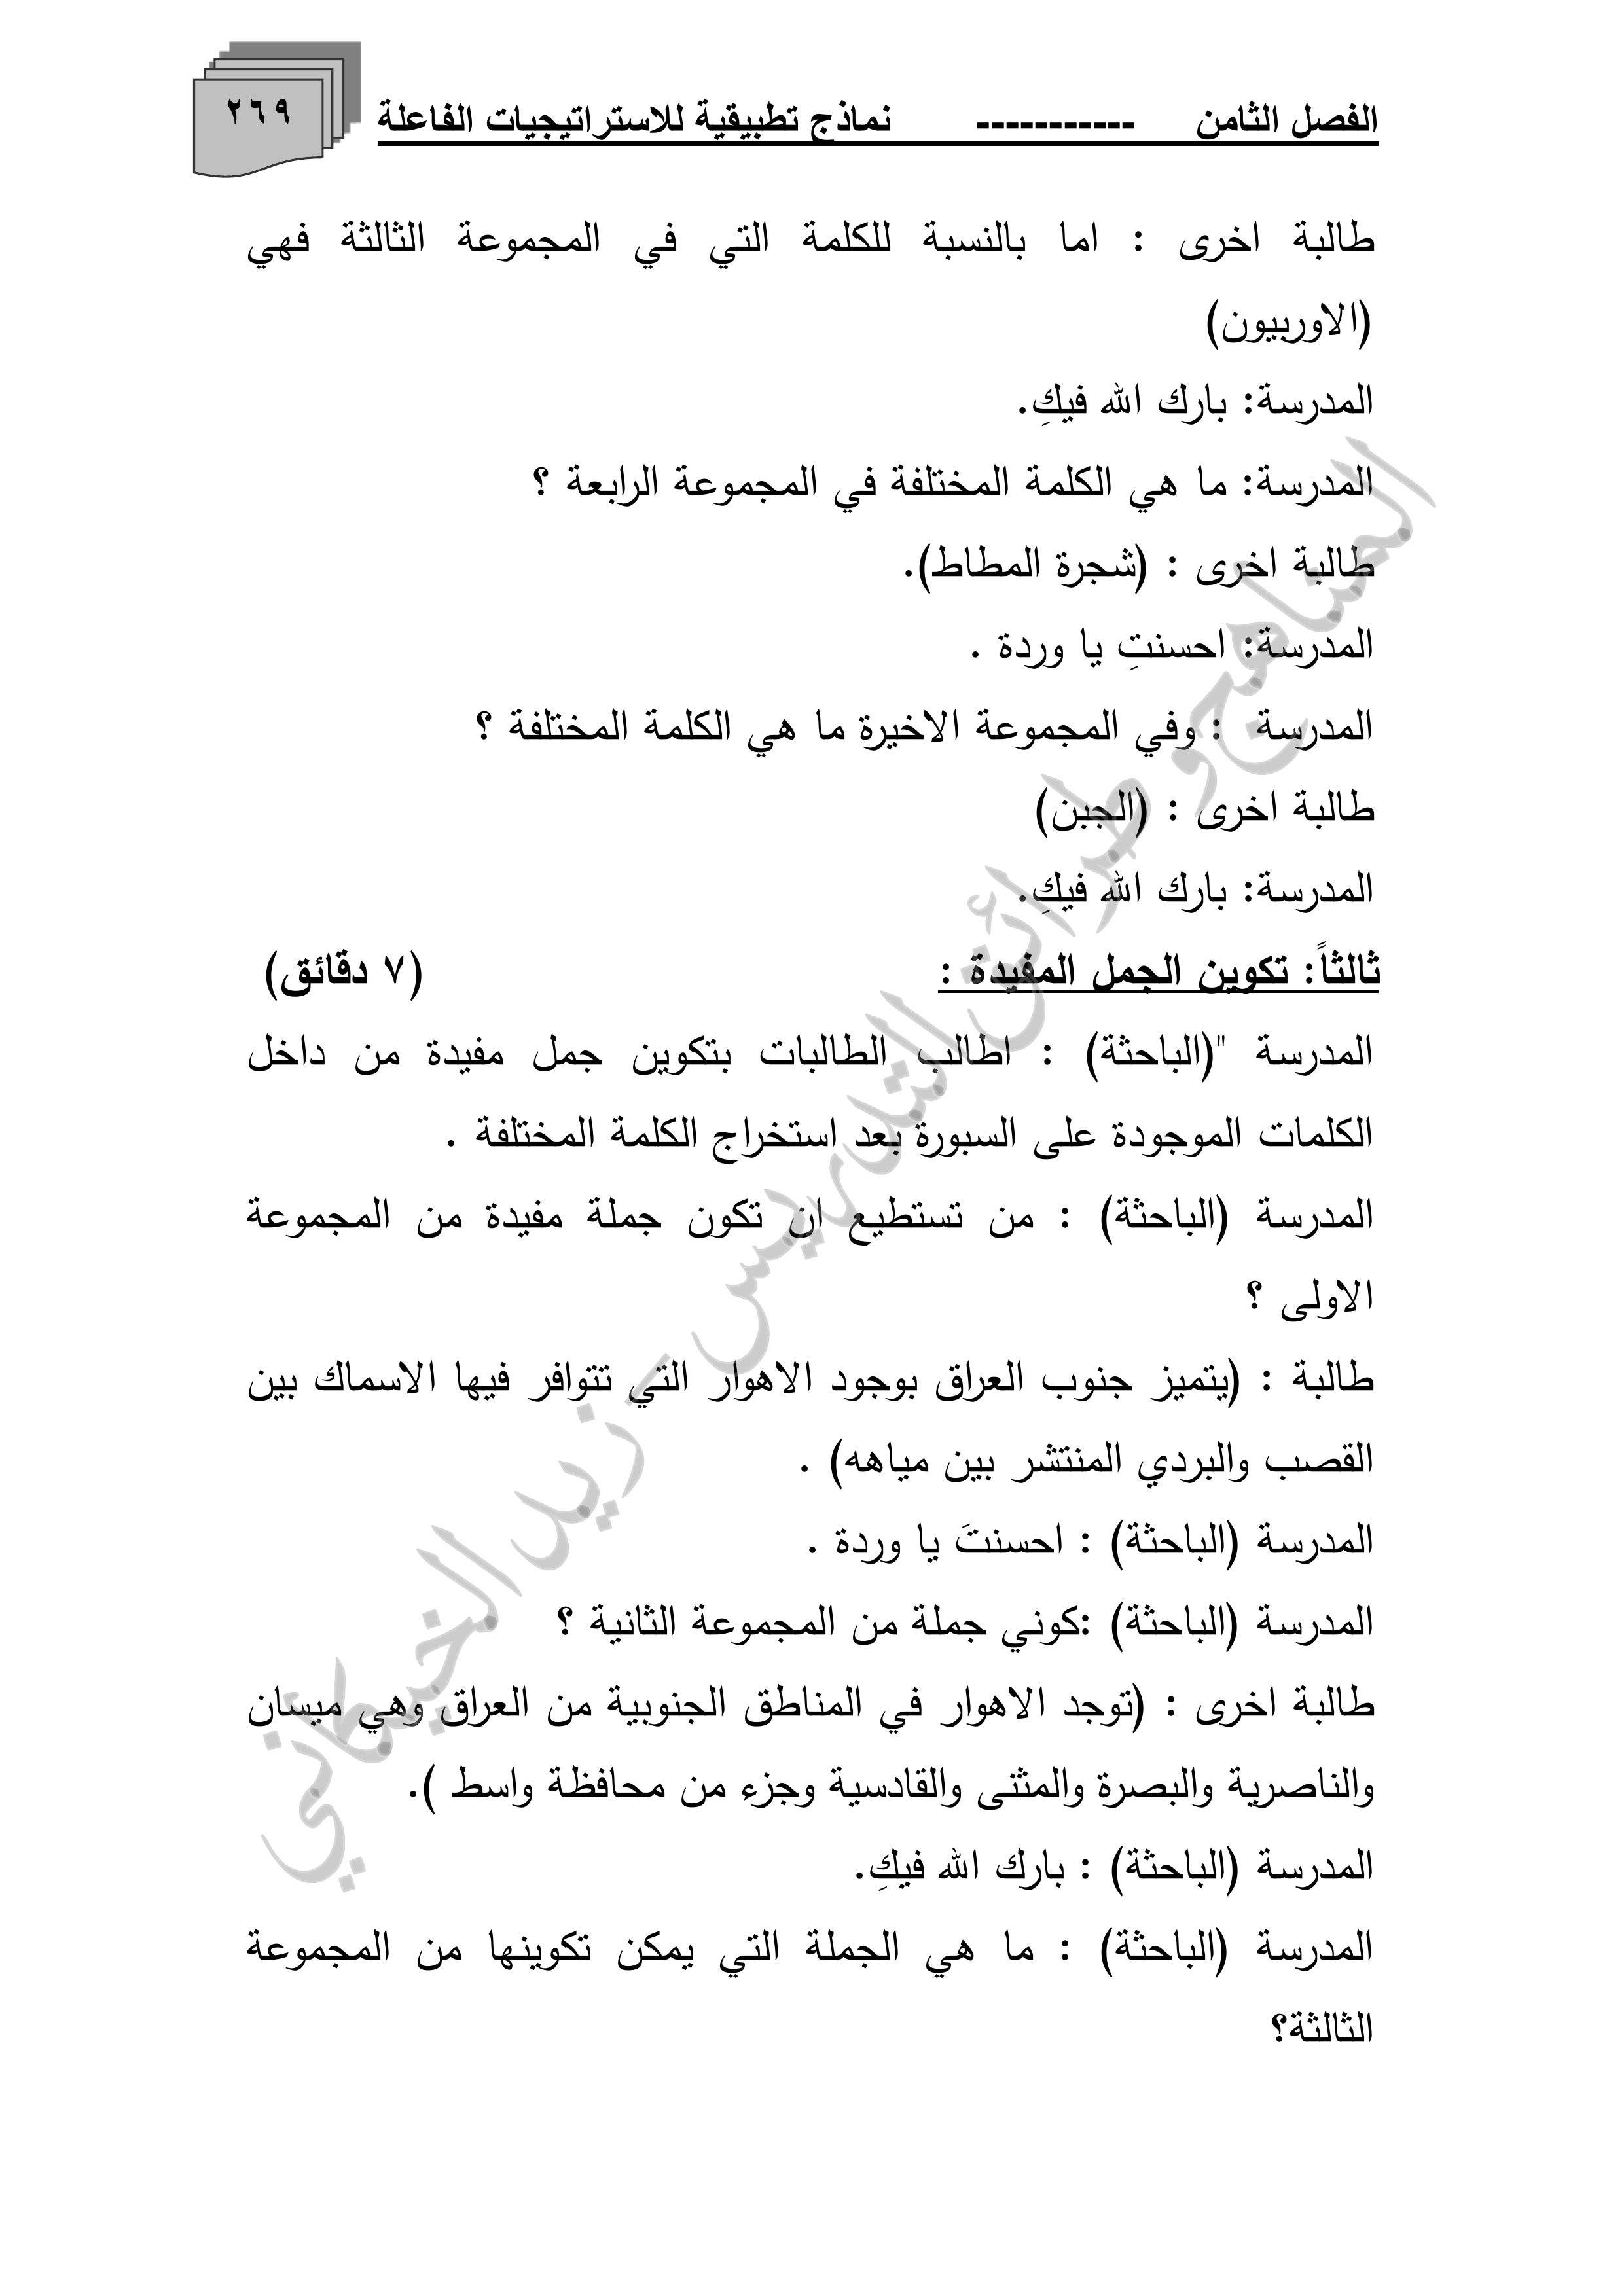 الفصل الثامن ----------- نماذج تطبيقية للاستراتيجيات الفاعلة
٢٦٩
طالبة اخرى : اما بالنسبة للكلمة التي في المجموعة الثالثة فهي
(الاوربيون)
المدرسة: بارك الله فيكِ.
المدرسة: ما هي الكلمة المختلفة في المجموعة الرابعة ؟
طالبة اخرى : (شجرة المطاط).
المدرسة: احسنتِ يا وردة .
المدرسة : وفي المجموعة الاخيرة ما هي الكلمة المختلفة ؟
طالبة اخرى : (الجبن)
المدرسة: بارك الله فيكِ.
ثالثاً: تكوين الجمل المفيدة : (٧ دقائق)
المدرسة "(الباحثة) : اطالب الطالبات بتكوين جمل مفيدة من داخل
الكلمات الموجودة على السبورة بعد استخراج الكلمة المختلفة .
المدرسة (الباحثة) : من تستطيع ان تكون جملة مفيدة من المجموعة
الاولى ؟
طالبة : (يتميز جنوب العراق بوجود الاهوار التي تتوافر فيها الاسماك بين
القصب والبردي المنتشر بين مياهه) .
المدرسة (الباحثة) : احسنتَ يا وردة .
المدرسة (الباحثة) :كوني جملة من المجموعة الثانية ؟
طالبة اخرى : (توجد الاهوار في المناطق الجنوبية من العراق وهي ميسان
والناصرية والبصرة والمثنى والقادسية وجزء من محافظة واسط ).
المدرسة (الباحثة) : بارك الله فيكِ.
المدرسة (الباحثة) : ما هي الجملة التي يمكن تكوينها من المجموعة
الثالثة؟
المناهج وطرائق التدريس - زيد الخيكاني